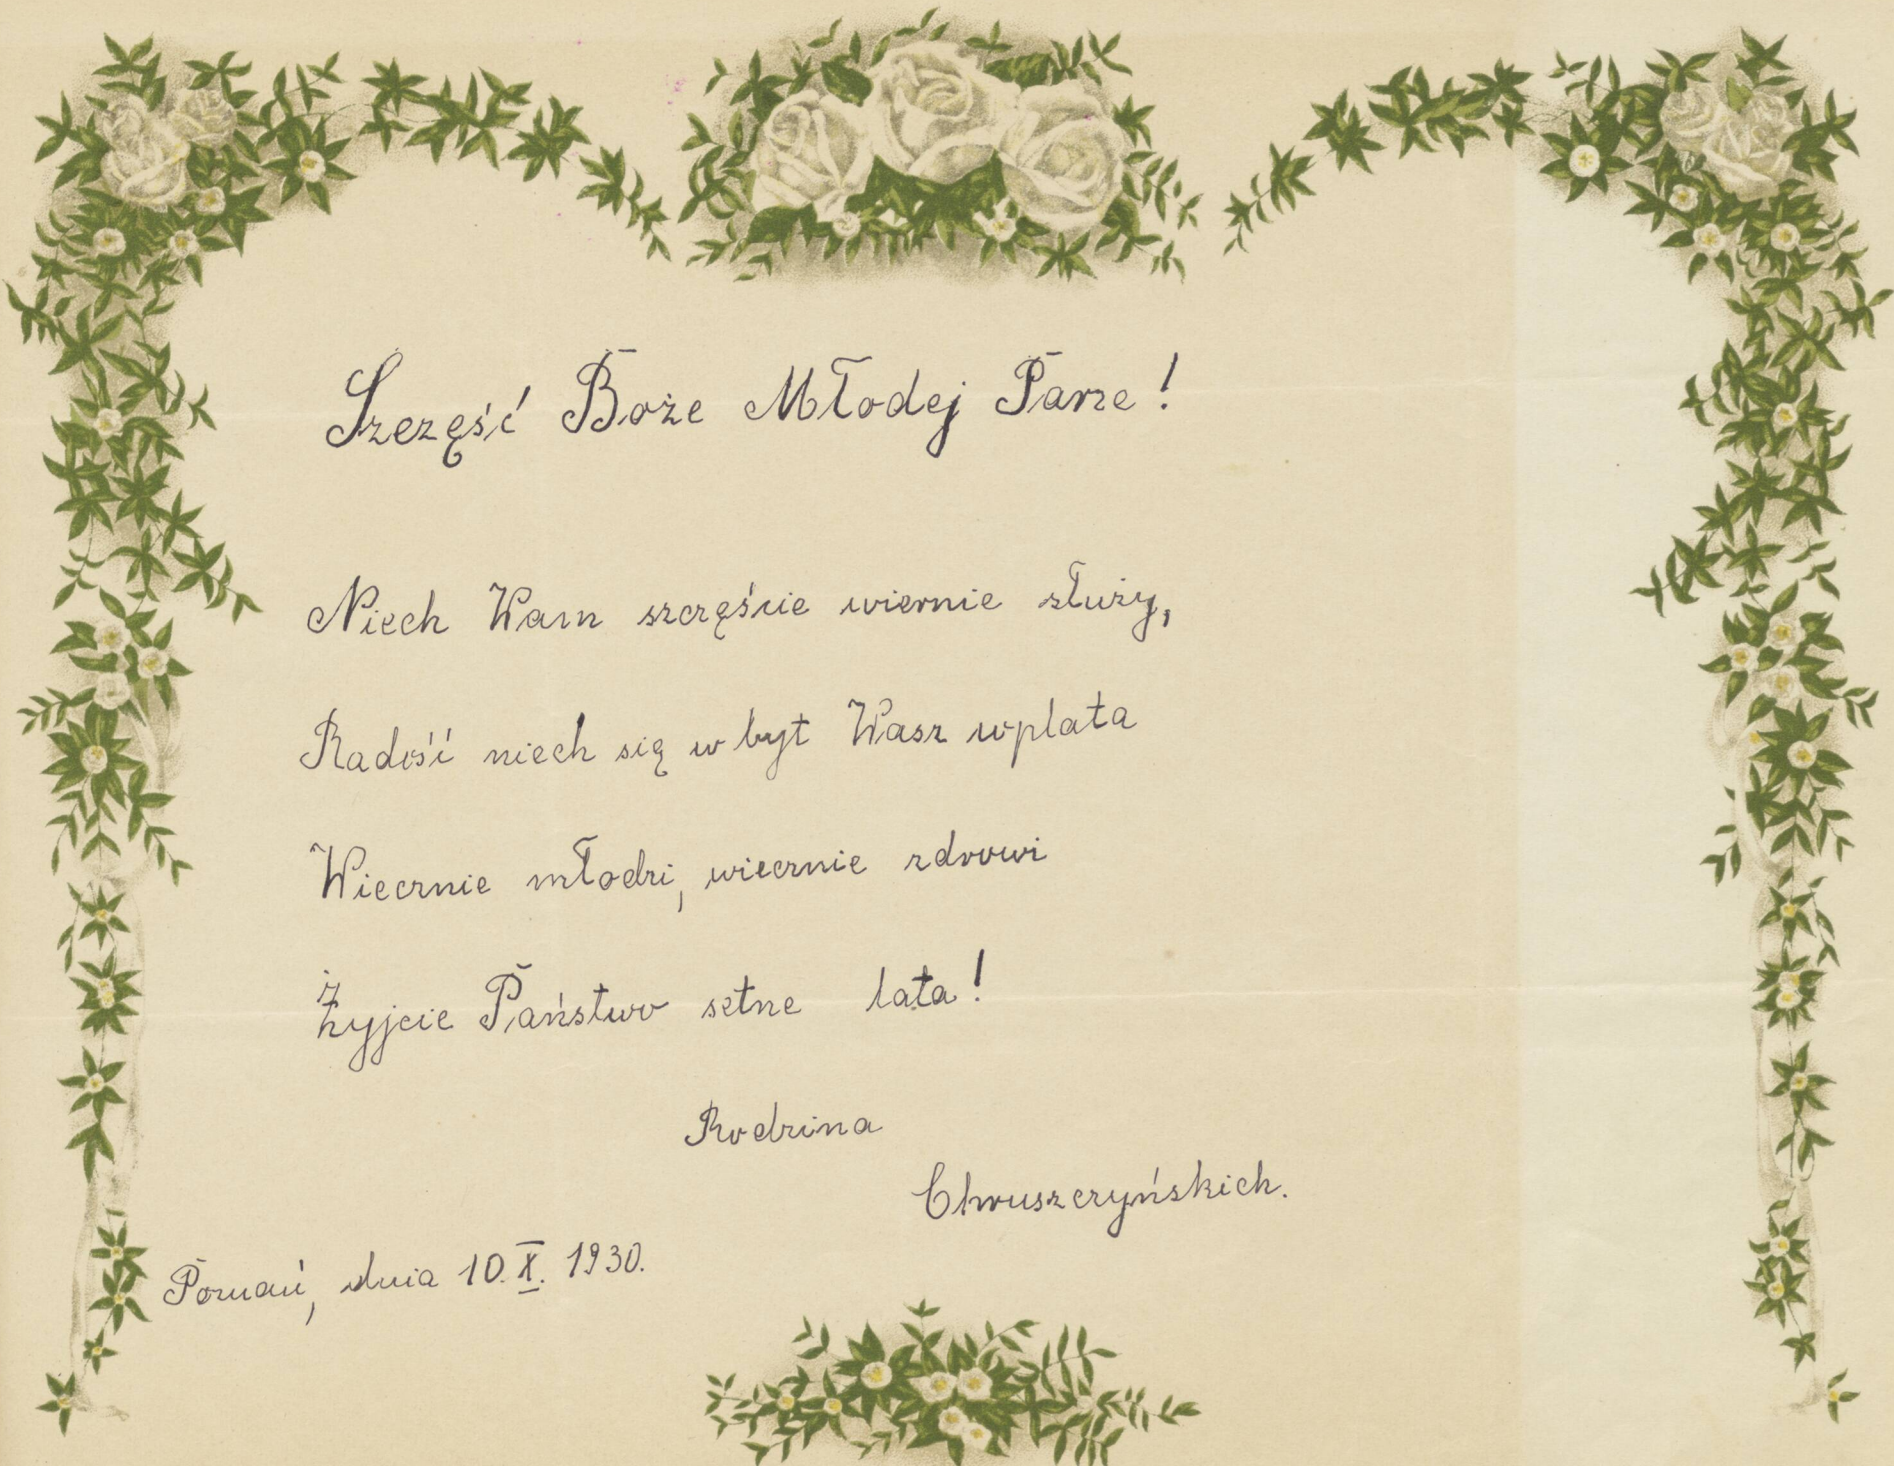 Szczęść Boże Młodej Parze!
Niech Wam szczęście wiernie służy,
Radość niech się w byt Wasz wplata
Wiecznie młodzi, wiecznie zdrowi
Żyjcie Państwo setne lata!
Rodzina
Chruszczyńskich.
Poznań, dnia 10.X.1930.